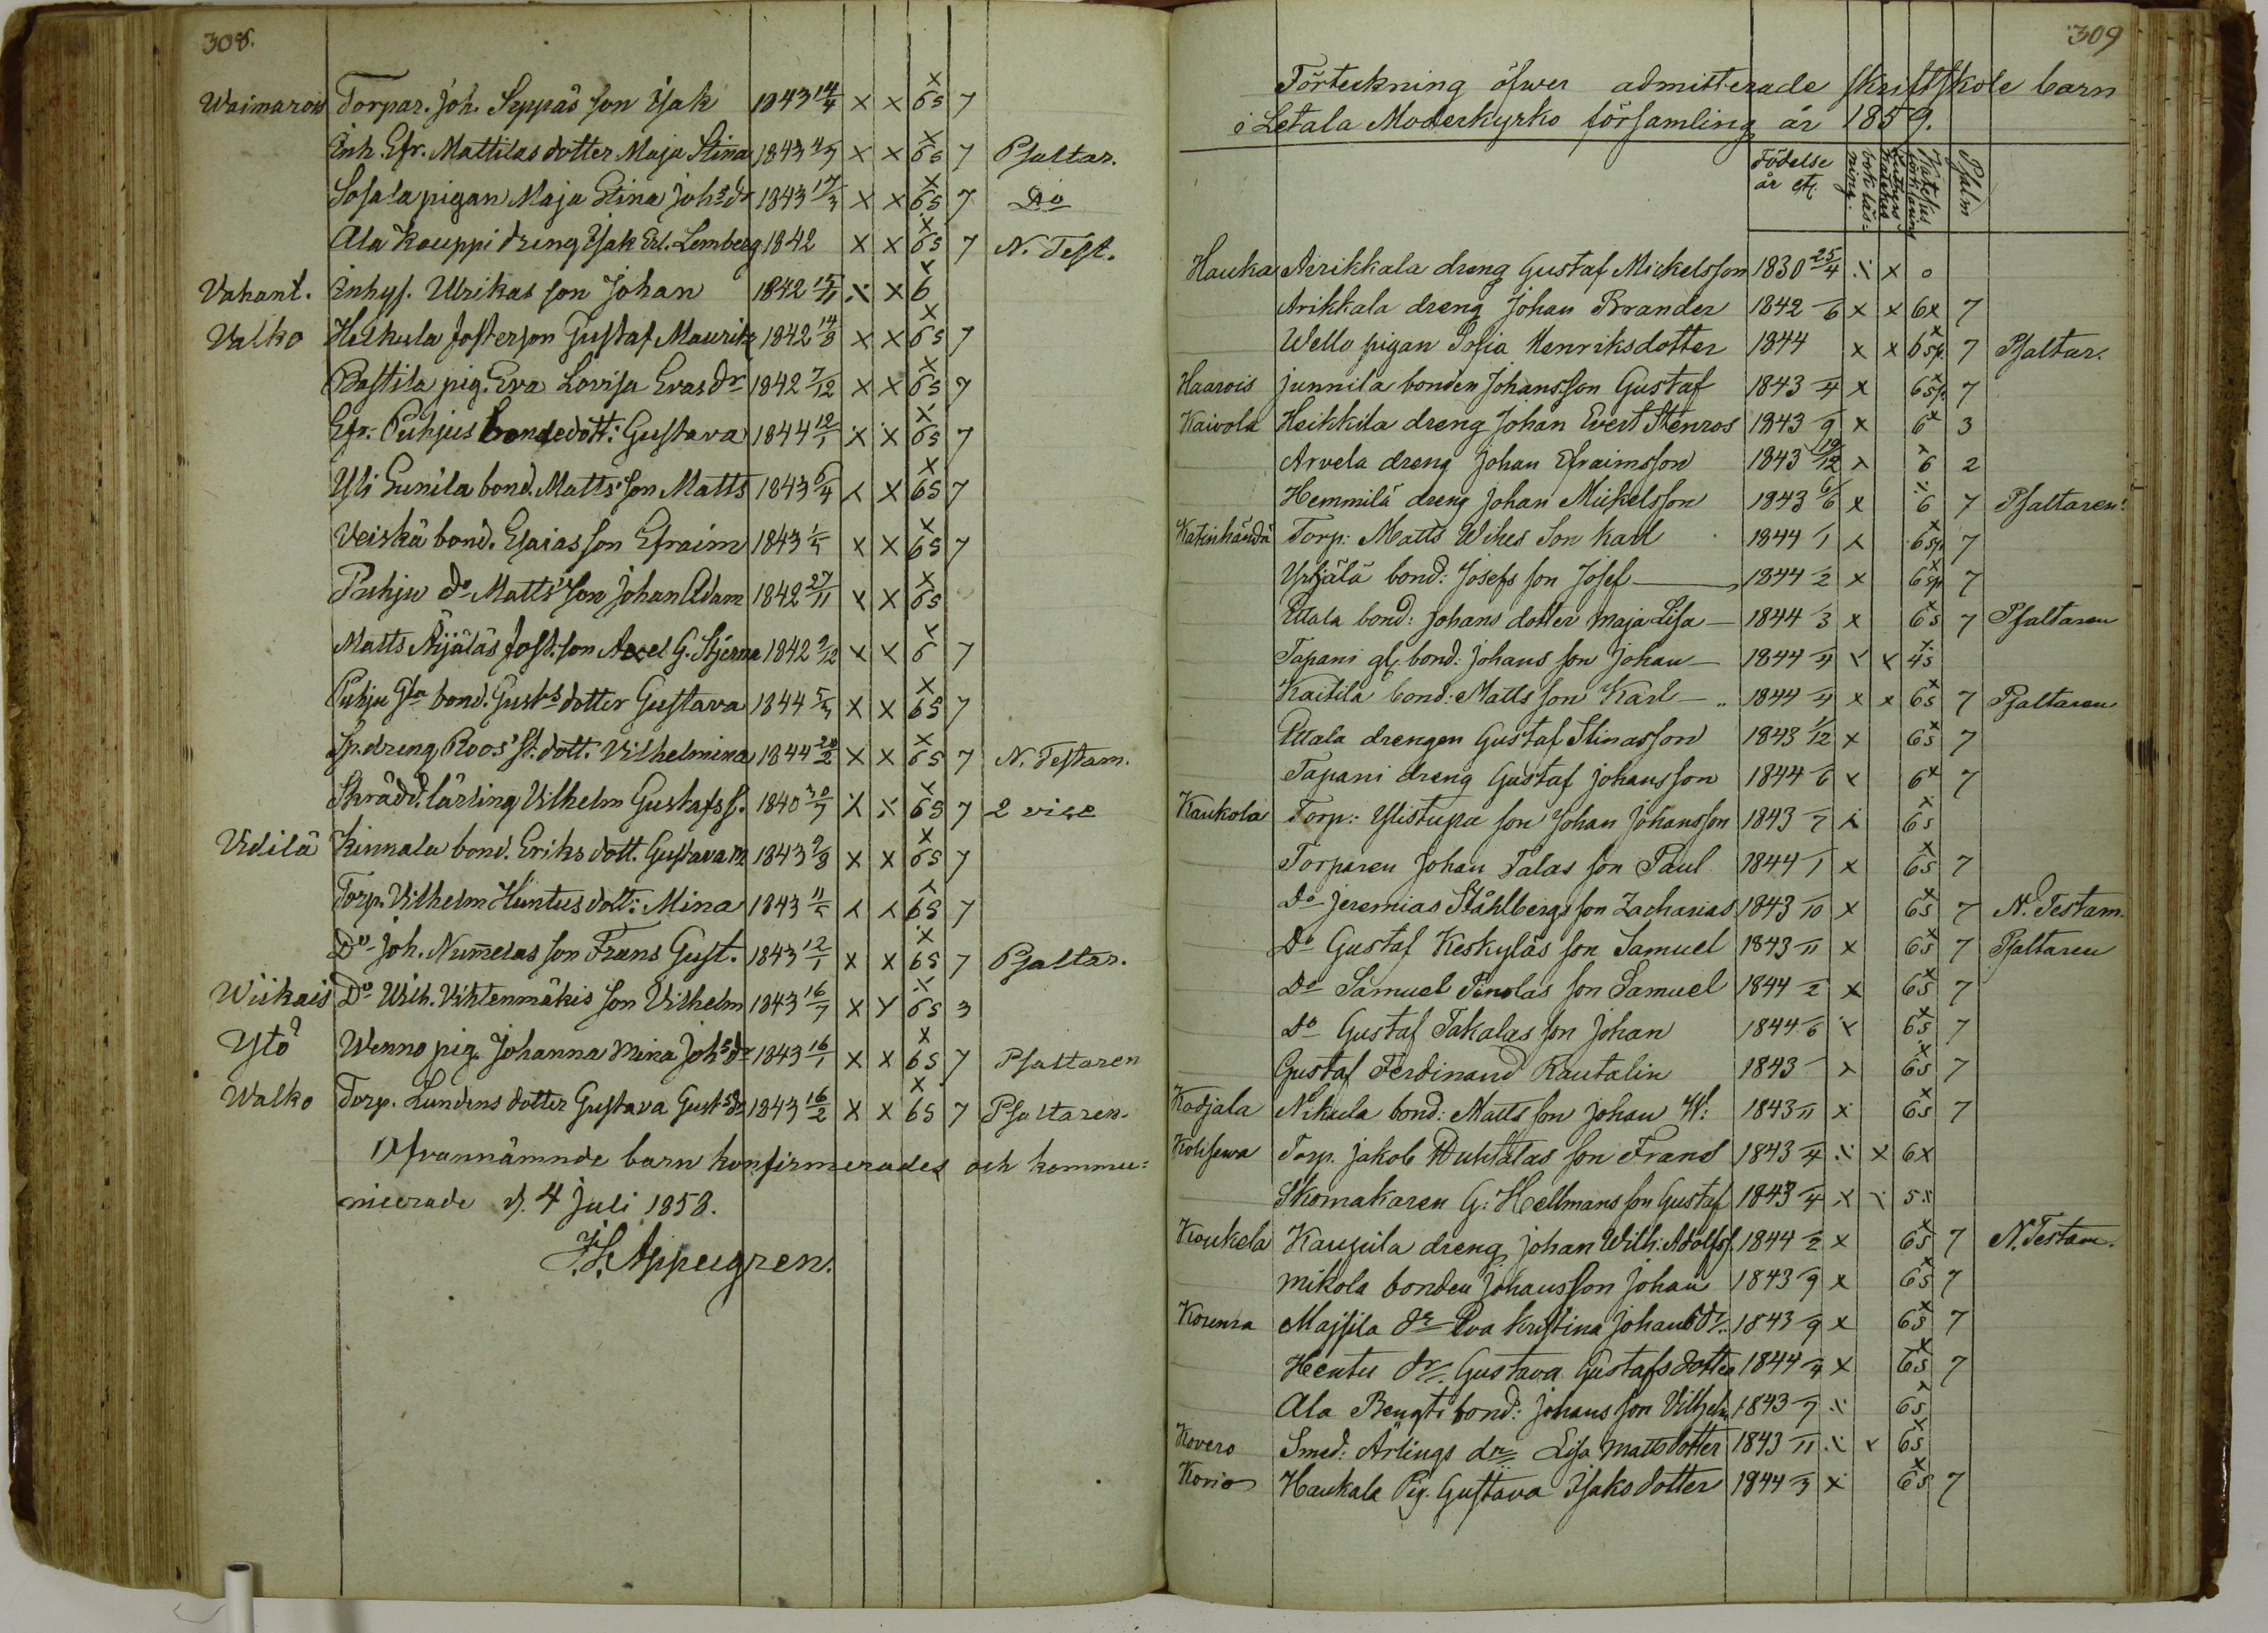 308.
Waimarois Torpar. Joh. Seppäs son Isak 1843 14/4 x x 65 x 7
Inh. Efr. Mattilas dotter Maja Stina 1843 x x 65 x 7 Psaltar.
Sosala pigan Maja Stina Johsdr 1843 17/3 x x 65 x 7 Do
Ala Kauppi dreng Isak Erl. Lemberg 1842 x x 65 x 7 N. Test.
Vahant. Inhys. Ulrikas son Johan 1842 15/11 x x 6 x
Valko Heikula fosterson Gustaf Maurits 1842 14/8 x x 65 x 7
Bastila pig. Eva Lovisa Evasdr 1842 7/12 x x 65 x 7
Efr. Puhjus bondedott: Gustava 1844 12/1 x x 65 x 7
Yli Eunila bond. Matts' son Matts 1843 6/4 x x 65 x 7
Veiskä bond. Esaias son Efraim 1843 x x 65 x 7
Puhju do Matts' son Johan Adam 1842 27/11 x x 65 x
Matts Äijäläs fost. son Axel G. Stjerna 1842 2/12 x x 6 x 7
Puhju Gla bond. Gustfs dotter Gustava 1844 x x 65 x 7
Sp. dreng Roos' st. dott. Vilhelmina 1844 20/2 x x 65 x 7 N. Testam.
Skrädd. lärling Vilhelm Gustafss. 1840 30/7 x x 65 x 7 2 vise
Vidilä Kinnala bond. Eriks dott. Gustava M. 1843 9/8 x x 65 x 7
Torp. Vilhelm Huntus dott: Mina 1843 x x 65 x 7
Do Joh. Num̅elas son Frans Gust. 1843 12/1 x x 65 x 7 Psaltar.
Wiikais Do Wilh. Vihtenmäkis son Vilhelm 1843 16/7 x x 65 x 3
Ytö Wenno pig. Johanna Mina Johsdr 1843 16/1 x x 65 x 7 Psaltaren
Walko Torp. Lundens dotter Gustava Gustsdr 1843 16/2 x x 65 x 7 Psaltaren.
Ofvannämnde barn konfirmerades och kommu:
nicerade d. 4 Juli 1858.
Appelgren.
309
Förteckning öfwer admitterade skriftskole barn
i Letala Moderkyrko församling år 1859.
Födelse år etc. bok läs: ning. Lutheri Kateches Kateches förklaring Psalm
Hauka Airikkala dreng Gustaf Mickelsson 1830 25/4 x x 0
Arikkala dreng Johan Brander 1842 /6 x x 6x 7
Wello pigan Sofia Henriksdotter 1844 x x 6sp. x 7 Psaltar.
Haarois Junnila bonden Johansson Gustaf 1843 /4 x 6sp. x 7
Kaivola Heikkila dreng Johan Evert Stenros 1843 /9 x 6 x 3
Arvela dreng Johan Efraimsson 1843 19/12 x 6 x 2
Hemmilä dreng Johan Mickelsson 1843 6/6 x 6 x 7 Psaltaren:
Katinhändä Torp: Matts Wikes son Karl 1844 /1 x 6sp x 7
Yrjälä bond: Josefs son Josef 1844 /2 x 6sp x 7
Uttala bond: Johans dotter Maja Lisa 1844 /3 x 65 x 7 Psaltaren
Tapani gl. bond: Johans son Johan 1844 /4 x x 45 x
Kaitila bond: Matts son Karl 1844 /4 x x 65 x 7 Psaltaren
Uttala drengen Gustaf Stinasson 1843 1/12 x 65 x 7
Tapani dreng Gustaf Johansson 1844 /6 x 6 x 7
Kaukola Torp: Ylistupa son Johan Johansson 1843 /7 x 65 x
Torparen Johan Talas son Paul 1844 /1 x 65 x 7
Do Jeremias Ståhlbergs son Zacharias 1843 /10 x 65 x 7 N. Testam.
Do Gustaf Keskyläs son Samuel 1843 /11 x 65 x 7 Psaltaren
Do Samuel Penolas son Samuel 1844 /2 x 65 x 7
Do Gustaf Takalas son Johan 1844 /6 x 65 x 7
Gustaf Ferdinand Rautalin 1843 x 65 x 7
Kodjala Nikula bond: Matts son Johan W: 1843 /11 x 65 x 7
Torp. Jakob son Frans 1843 /4 x x 6x
Skomakaren G: Hellmans son Gustaf 1843 /4 x x 5x
Koukela Kaupila dreng Johan Wilh: Adolfs. 1844 /2 x 65 x 7 N. Testam.
Mikola bonden Johansson Johan 1843 /9 x 65 x 7
Kounra Majsila dr Eva Kristina Johansdr 1843 /9 x 65 x 7
Hentu dr Gustava Gustafsdotter 1844 /4 x 65 x 7
Ala Bengti bond: Johans son Vilhelm 1843 /7 x 65 x
Kovero Smed: Ärlings dr Lisa Mattsdotter 1843 /11 x x 65 x
Kovio Haukala Pig. Gustava Isaksdotter 1844 /3 x 65 x 7